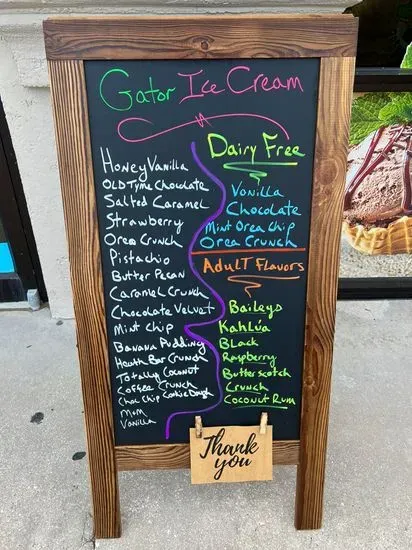 Gator Ice Cream
Honey Vanilla
OLD Tyme Chocolate
Salted Caramel
Strawberry
Oreo Crunch
Pistachio
Butter Pecan
Caramel Crunch
Chocolate Velvet
Mint Chip
Banana Pudding
Heath Bar Crunch
Totally Coconut
Coffee Crunch
Choc Chip Cookie Dough
Mom
Vanilla
Dairy Free
Vanilla
Chocolate
Mint Orea Chip
Orea Crunch
Adult Flavors
Baileys
Kahlúa
Black
Raspberry
Butterscotch
Crunch
Coconut Rum
Thank
you